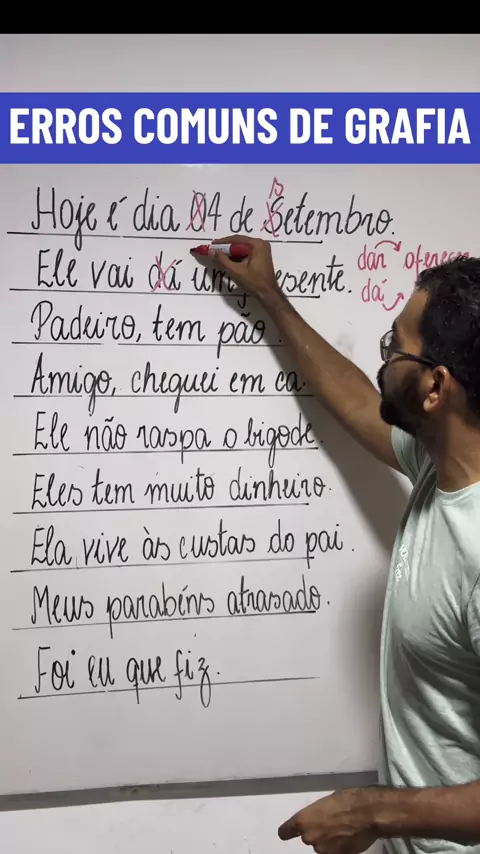 ERROS COMUNS DE GRAFIA
Hoje é dia 04 de Setembro.
s
Ele vai dá um presente.
dar oferecer
dá
Padeiro, tem pão
Amigo, cheguei em ca.
Ele não raspa o bigode.
Eles tem muito dinheiro.
Ela vive às custas do pai.
Meus parabéns atrasado.
Foi eu que fiz.